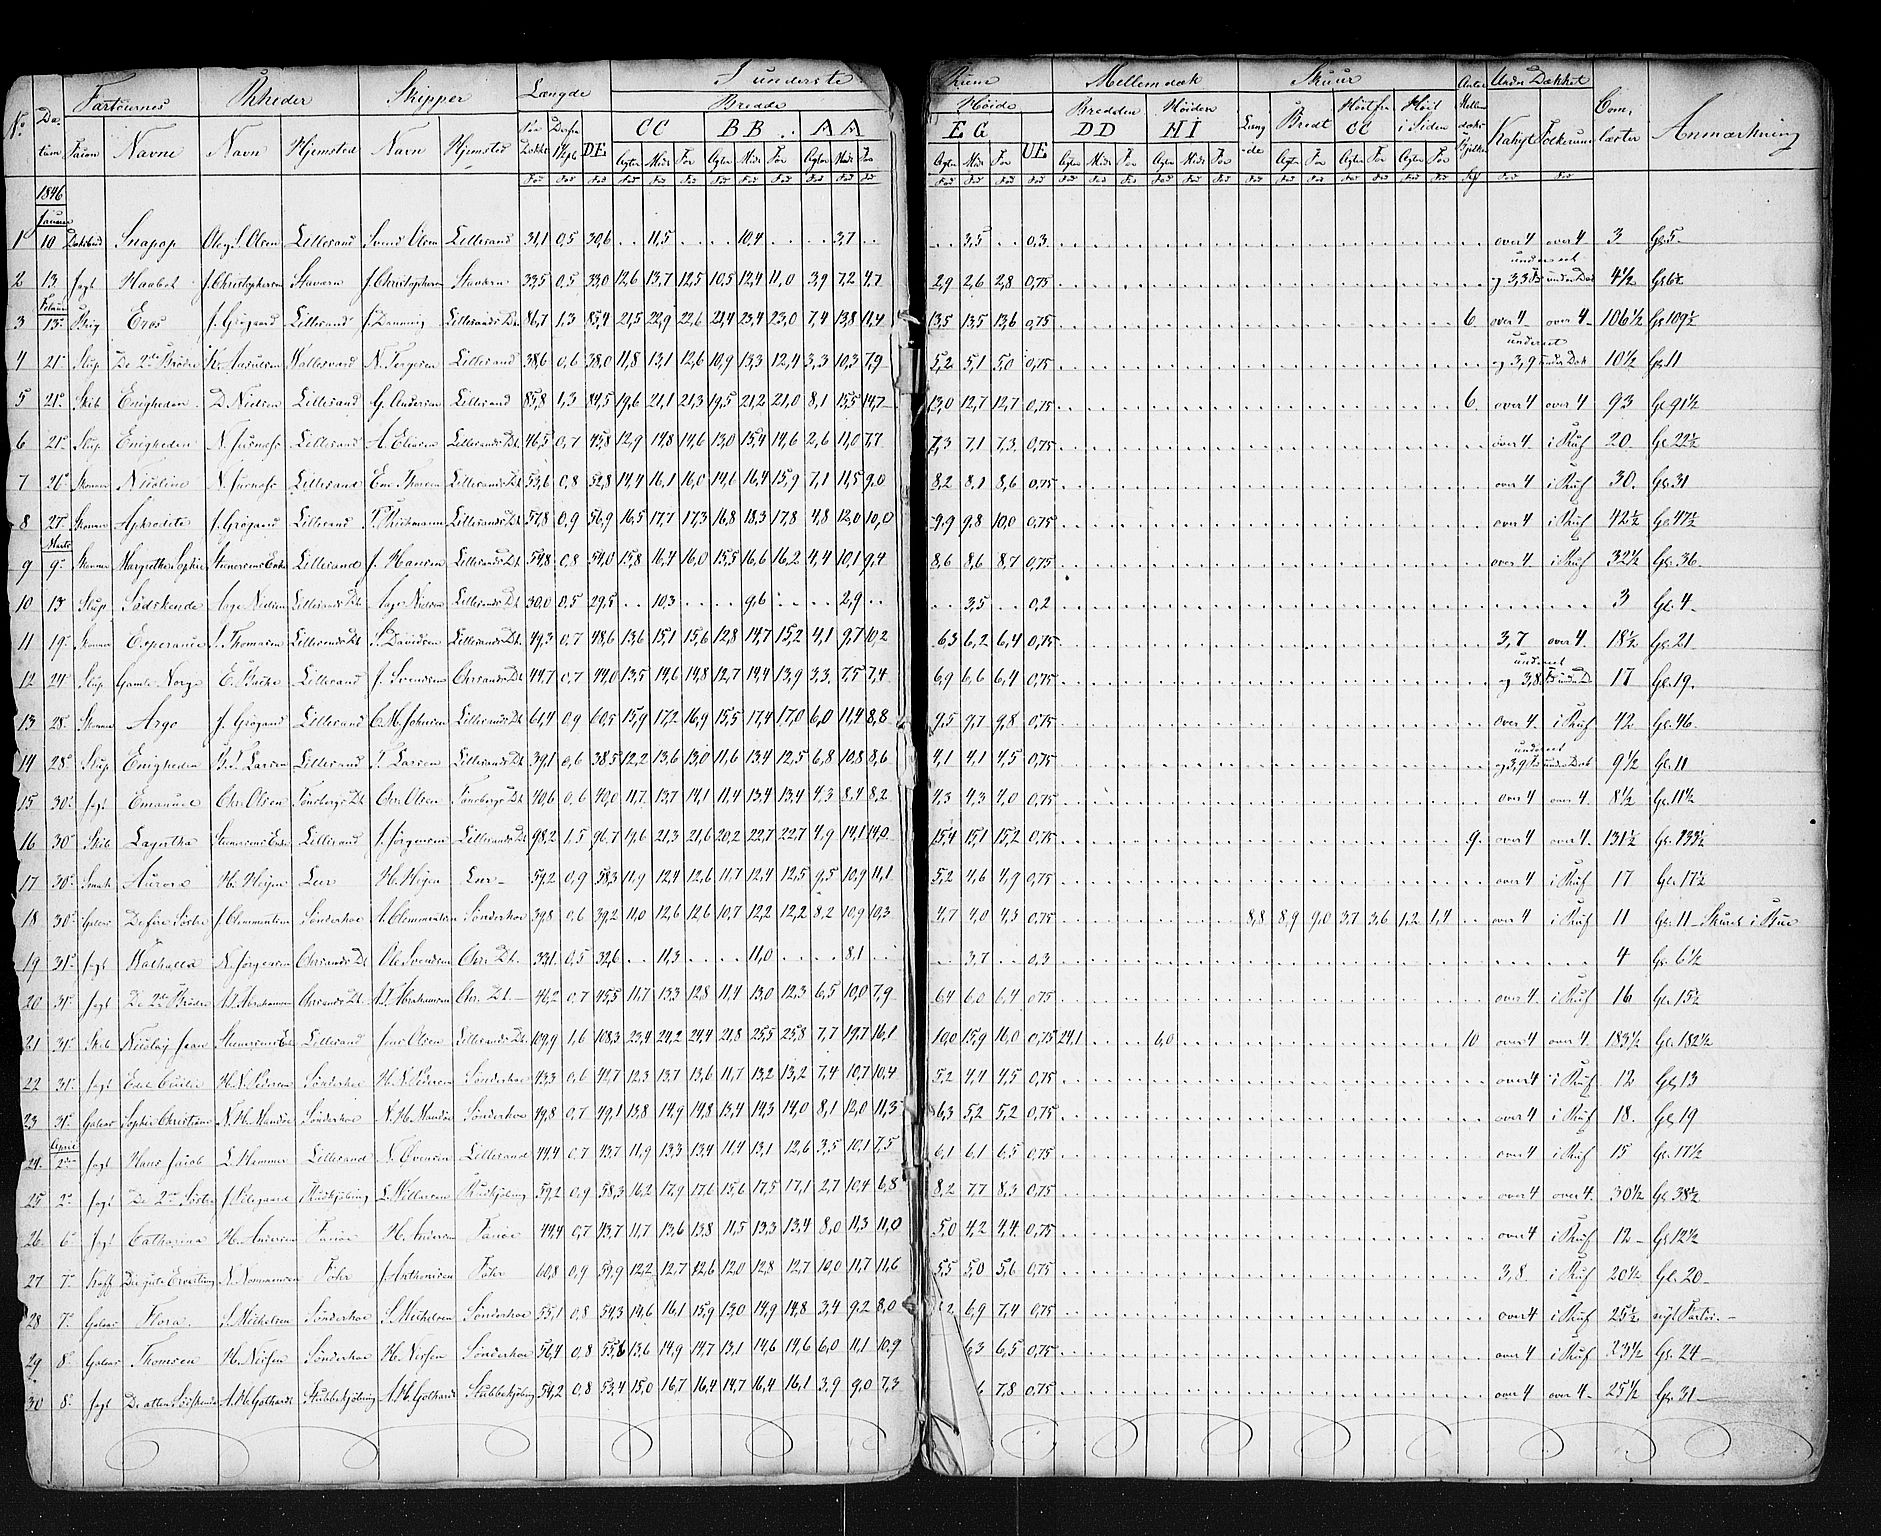 Fartøiernes Rheder Skipper Længde I underste Rum Mellemdæk Skuur Under Dækket
No. Datum Bredde Høide Bredden Høiden Længde Bredt Høit fra CC Høit i Siden Kahyt Folkerum Com. læster Anmærkning
Navne Navn Hjemsted Navn Hjemsted DE CC BB AA EG UE DD HI
Agter Midt For Agter Midt For Agter Midt For Agter Midt For Agter Midt For Agter Midt For Agter For Agter For Agter For
1846
Januar
1 10 Snapop Ole S. Olsen Lillesand Svend Olsen Lillesand 31,1 0,5 30,6 11,5 10,4 3,7 3,5 0,3 over 4 over 4 3 Gl. 5
2 13 Jagt Haabet J. Christophersen Stavern J. Christophersen Stavern 33,5 0,5 33,0 12,6 13,7 12,5 10,5 12,4 11,0 3,9 7,2 4,7 2,9 2,6 2,8 0,75 underset og 3,3 under Dæk 4½ Gl. 6½
Februar
3 13 Brig Eros J. Grøgaard Lillesand J. Danning Lillesands Dt. 86,7 1,3 85,4 21,5 22,9 22,6 21,4 23,4 23,0 7,4 13,8 11,4 13,5 13,5 13,6 0,75 6 over 4 over 4 106½ Gl. 109½
4 21 Slup De 2de Brødre Lillesand 38,6 0,6 38,0 11,8 13,1 12,6 10,9 13,3 12,4 3,3 10,3 7,9 5,2 5,1 5,0 0,75 underset og 3,9 under Dæk 10½ Gl. 11
5 21 Skib Enigheden D. Nielsen Lillesand G. Andersen Lillesand 85,8 1,3 84,5 19,6 21,1 21,3 19,5 21,2 21,0 8,1 15,5 14,7 13,0 12,7 12,7 0,75 6 over 4 over 4 93 Gl. 91½
6 21 Slup Enigheden Lillesand A. Ellusen Lillesands Dt. 46,5 0,7 45,8 12,9 14,8 14,6 13,0 15,4 14,6 2,6 11,0 7,7 7,3 7,1 7,3 0,75 over 4 i Ruf 20 Gl. 22½
7 26 Nicoline Lillesand Lillesands Dt. 53,6 0,8 52,8 14,4 16,1 16,0 14,6 16,4 15,9 7,1 11,5 9,0 8,2 8,1 8,6 0,75 over 4 i Ruf 30 Gl. 31
8 27 Aphrodite J. Grøgaard Lillesand Lillesands Dt. 57,8 0,9 56,9 16,5 17,7 17,3 16,8 18,3 17,8 4,8 12,0 10,0 9,9 9,8 10,0 0,75 over 4 i Ruf 42½ Gl. 47½
Marts
9 9 Margrethe Sophie Steenersens Enke Lillesand J. Hansen Lillesands Dt. 54,8 0,8 54,0 15,8 16,4 16,0 15,5 16,6 16,2 4,4 10,1 9,4 8,6 8,6 8,7 0,75 over 4 i Ruf 32½ Gl. 36
10 13 Slup Sødskende Aage Nielsen Lillesands Dt. Aage Nielsen Lillesands Dt. 30,0 0,5 29,5 10,3 9,6 2,9 3,5 0,2 3 Gl. 4
11 19 Esperance S. Thomasen Lillesands Dt. S. Davidsen Lillesands Dt. 49,3 0,7 48,6 13,6 15,1 15,6 12,8 14,7 15,2 4,1 9,7 10,2 6,3 6,2 6,4 0,75 3,7 over 4 18½ Gl. 21
12 24 Slup Gamle Norge Lillesand J. Svendsen Chrsands Dt. 44,7 0,7 44,0 13,5 14,6 14,8 12,7 14,4 13,9 3,3 7,5 7,4 6,9 6,6 6,4 0,75 underset og 3,8 17 Gl. 19
13 28 Argo J. Grøgaard Lillesand C. M. Johnsen Lillesands Dt. 61,4 0,9 60,5 15,9 17,2 16,9 15,5 17,4 17,0 6,0 11,4 8,8 9,5 9,7 9,8 0,75 over 4 i Ruf 42 Gl. 46
14 28 Slup Enigheden Lillesand T. Larsen Lillesands Dt. 39,1 0,6 38,5 12,2 13,6 13,0 11,6 13,4 12,5 6,8 10,8 8,6 4,1 4,1 4,5 0,75 underset og 3,9 under Dæk 9½ Gl. 11
15 30 Jagt Emanuel Chr. Olsen Tønsbergs Dt. Chr. Olsen Tønsbergs Dt. 40,6 0,6 40,0 11,7 13,7 14,1 11,4 13,4 13,4 4,3 8,4 8,2 4,3 4,3 4,0 0,75 over 4 over 4 8½ Gl. 11½
16 30 Skib Lagertha Steenersens Enke Lillesand J. Jørgensen Lillesands Dt. 98,2 1,5 96,7 19,6 21,3 21,6 20,2 22,7 22,7 4,9 14,1 14,0 15,4 15,1 15,2 0,75 9 over 4 over 4 131½ Gl. 133½
17 30 Smak Aurora H. Høyer Leer H. Høyer Leer 59,2 0,9 58,3 11,9 12,4 12,6 11,7 12,4 12,5 9,5 10,9 11,1 5,2 4,6 4,9 0,75 over 4 i Ruf 17 Gl. 17½
18 30 Galeas De fire Søstre J. Clemmentsen Sønderhoe A. Clemmentsen Sønderhoe 39,8 0,6 39,2 11,0 12,6 12,6 10,7 12,2 12,2 8,2 10,9 10,3 4,7 4,0 4,3 0,75 8,8 8,9 9,0 3,7 3,6 1,2 1,4 over 4 i Ruf 11 Gl. 11
19 31 Jagt Walhalla N. Jørgensen Chrsands Dt. Ole Svendsen Chrs. Dt. 33,1 0,5 32,6 11,3 11,0 8,1 3,7 0,3 4 Gl. 6½
20 31 Jagt De 2de Brødre Abrahamsen Chrsands Dt. Abrahamsen Chr. Dt. 46,2 0,7 45,5 11,7 13,3 12,8 11,4 13,0 12,3 6,5 10,0 7,9 6,4 6,0 6,4 0,75 over 4 i Ruf 16 Gl. 15½
21 31 Skib Nicolay Jean Steenersens Enke Lillesand Jens Olsen Lillesands Dt. 109,9 1,6 108,3 23,4 24,2 24,4 21,8 25,5 25,8 7,7 19,7 16,1 10,0 15,9 10,0 0,75 24,1 6,0 10 over 4 over 4 183½ Gl. 182½
22 31 Jagt H. N. Pedersen Sønderhoe H. N. Pedersen Sønderhoe 43,3 0,6 42,7 12,3 13,7 13,6 11,7 13,2 13,2 7,4 10,7 10,4 5,2 4,4 4,5 0,75 over 4 i Ruf 12 Gl. 13
23 31 Galeas Sophie Christiane N. H. Mandøe Sønderhoe N. H. Mandøe Sønderhoe 49,8 0,7 49,1 13,8 14,9 14,8 13,4 14,3 14,0 8,1 12,0 11,3 6,3 5,2 5,2 0,75 over 4 i Ruf 18 Gl. 19
April
24 2 Jagt Hans Jacob L. Hemmer Lillesand N. Evensen Lillesand 44,4 0,7 43,7 11,9 13,3 13,4 11,4 13,1 12,6 3,5 10,1 7,5 6,1 6,1 6,5 0,75 over 4 i Ruf 15 Gl. 17½
25 2 Jagt De 2de Søstre Rudkjøbing Rudkjøbing 59,2 0,9 58,3 16,2 17,9 17,6 15,6 17,5 17,1 2,7 10,4 6,8 8,2 7,7 8,3 0,75 over 4 over 4 30½ Gl. 38½
26 6 Jagt Catharina H. Andersen Fanøe H. Andersen Fanøe 44,4 0,7 43,7 11,7 13,6 13,8 11,5 13,3 13,4 8,0 11,3 11,0 5,0 4,2 4,4 0,75 over 4 i Ruf 12 Gl. 12½
27 7 Kuff N. Nommensen Föhr J. Arthonisen Föhr 60,8 0,9 59,9 12,2 12,7 12,6 12,0 12,8 12,7 10,0 11,7 11,6 5,5 5,0 5,6 0,75 3,8 i Ruf 20½ Gl. 20
28 7 Galeas Flora S. Michelsen Sønderhoe S. Michelsen Sønderhoe 55,1 0,8 54,3 14,6 16,1 15,9 13,0 14,9 14,8 3,4 9,2 8,0 6,9 7,4 0,75 over 4 i Ruf 25½ nyt Fartøi
29 8 Galeas Thomsen H. Nissen Sønderhoe H. Nissen Sønderhoe 56,4 0,8 55,6 13,6 14,9 14,7 13,1 14,6 14,6 6,0 11,1 10,9 6,3 6,5 0,75 over 4 i Ruf 23½ Gl. 24
30 8 Jagt De otten Sødskende A. H. Gothardt Stubbekjøbing A. H. Gothardt Stubbekjøbing 54,2 0,8 53,4 15,0 16,7 16,4 14,7 16,4 16,1 3,9 9,0 7,3 7,8 0,75 over 4 over 4 25½ Gl. 31